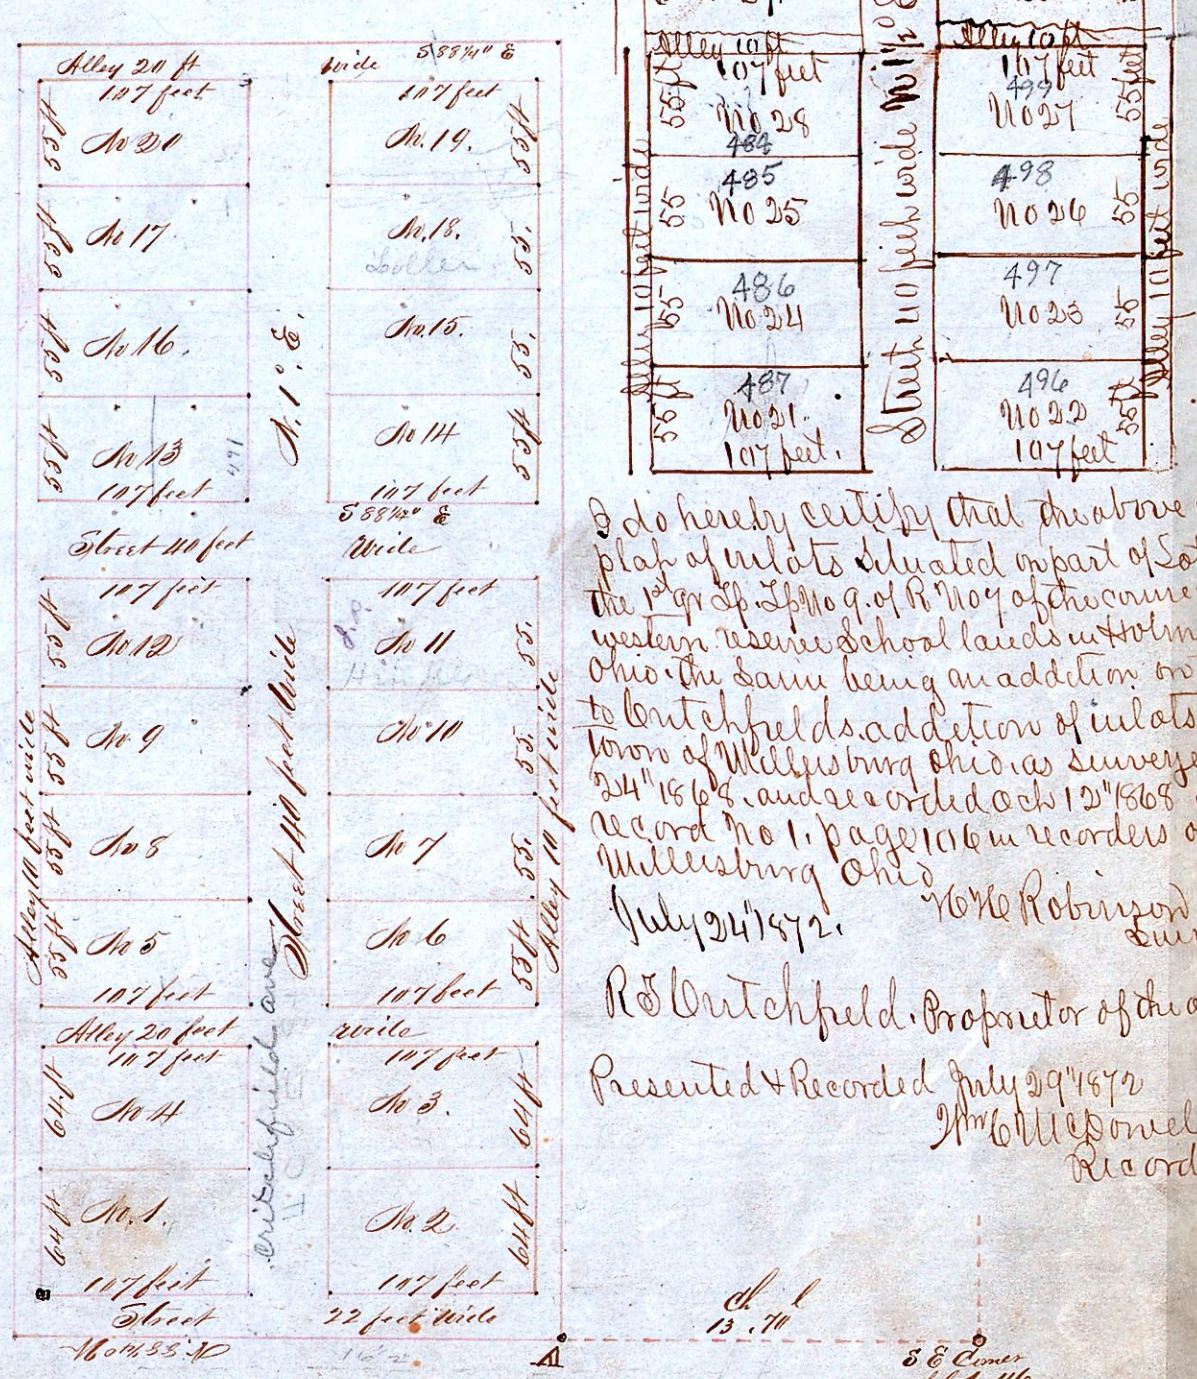 Alley 20 ft wide S 88¼° E
107 feet 107 feet
55 ft No 20 No. 19. 55 ft
55 ft No 17 No. 18. 55.
55 ft No 16. No. 15. 55.
55 ft No 13 No 14 55 ft
491
107 feet 107 feet
N. 1° E.
S 88¼° E
Street 40 feet Wide
107 feet 107 feet
55 ft No 12 No 11 55.
55 ft No 9 No 10 55.
55 ft No 8 No 7 55.
55 ft No 5 No 6 55 ft
107 feet 107 feet
Alley 10 feet wide
Street 40 feet Wide
Alley 10 feet wide
Critchfield ave.
Alley 20 feet wide
107 feet 107 feet
64 ft No 4 No 3. 64 ft
64 ft No. 1. No. 2 64 ft
107 feet 107 feet
Street 22 feet Wide
Alley 10 ft Alley 10 ft
107 feet 107 feet
499
55 ft No 28 No 27 55 feet
484
485 498
55 No 25 No 26 55
486 497
55 No 24 No 23 55
487 496
No 21. No 22 55 ft
107 feet. 107 feet
Alley 10 feet wide
Street 40 feet wide N 1½° E
Alley 10 feet wide
I do hereby certify that the above
plat of inlots situated on part of Lot
the 1st qr Tp. Tp No 9. of R No 7 of the
western reserve School lands in Holm
Ohio. the same being an addition
to Critchfields addition of inlots
town of Millersburg Ohio. as surveye
24" 1868. and recorded Oct 12" 1868
record No 1. page 106 in recorders o
Millersburg Ohio
July 24" 1872. Robinson
R S Critchfield. Proprietor of the a
Presented & Recorded July 29" 1872
Wm C McDowel
Record
ch l
13.70
S E Corner